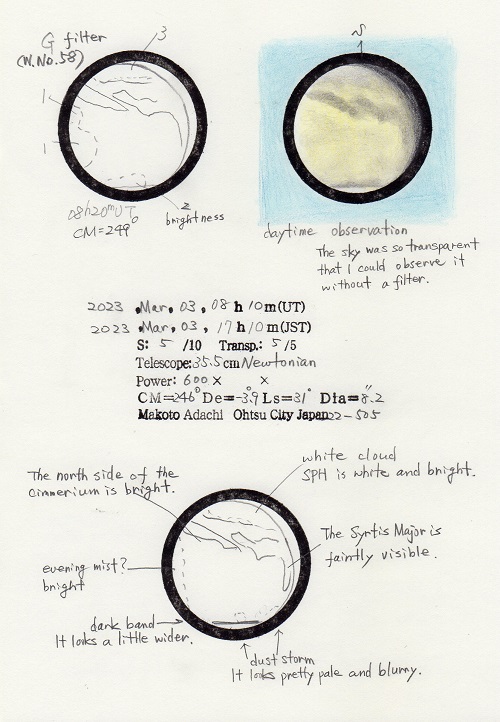 G filter
(W.No.58)
3
1
1
2
brightness
08h20mUT
CM=249°
N
daytime observation
The sky was so transparent
that I could observe it
without a filter.
2023 .Mar. 03, 08 h 10 m (UT)
2023 .Mar. 03, 17 h 10 m (JST)
S: 5 /10 Transp.: 5 /5
Telescope: 35.5 cm Newtonian
Power: 600 × ×
CM=246° De=-3.9° Ls=31° Dia=8.2"
Makoto Adachi Ohtsu City Japan 22-505
white cloud
SPH is white and bright.
The north side of the
cimmerium is bright.
The Syrtis Major is
faintly visible.
evening mist?
bright
dark band
It looks a little wider.
dust storm
It looks pretty pale and blurry.